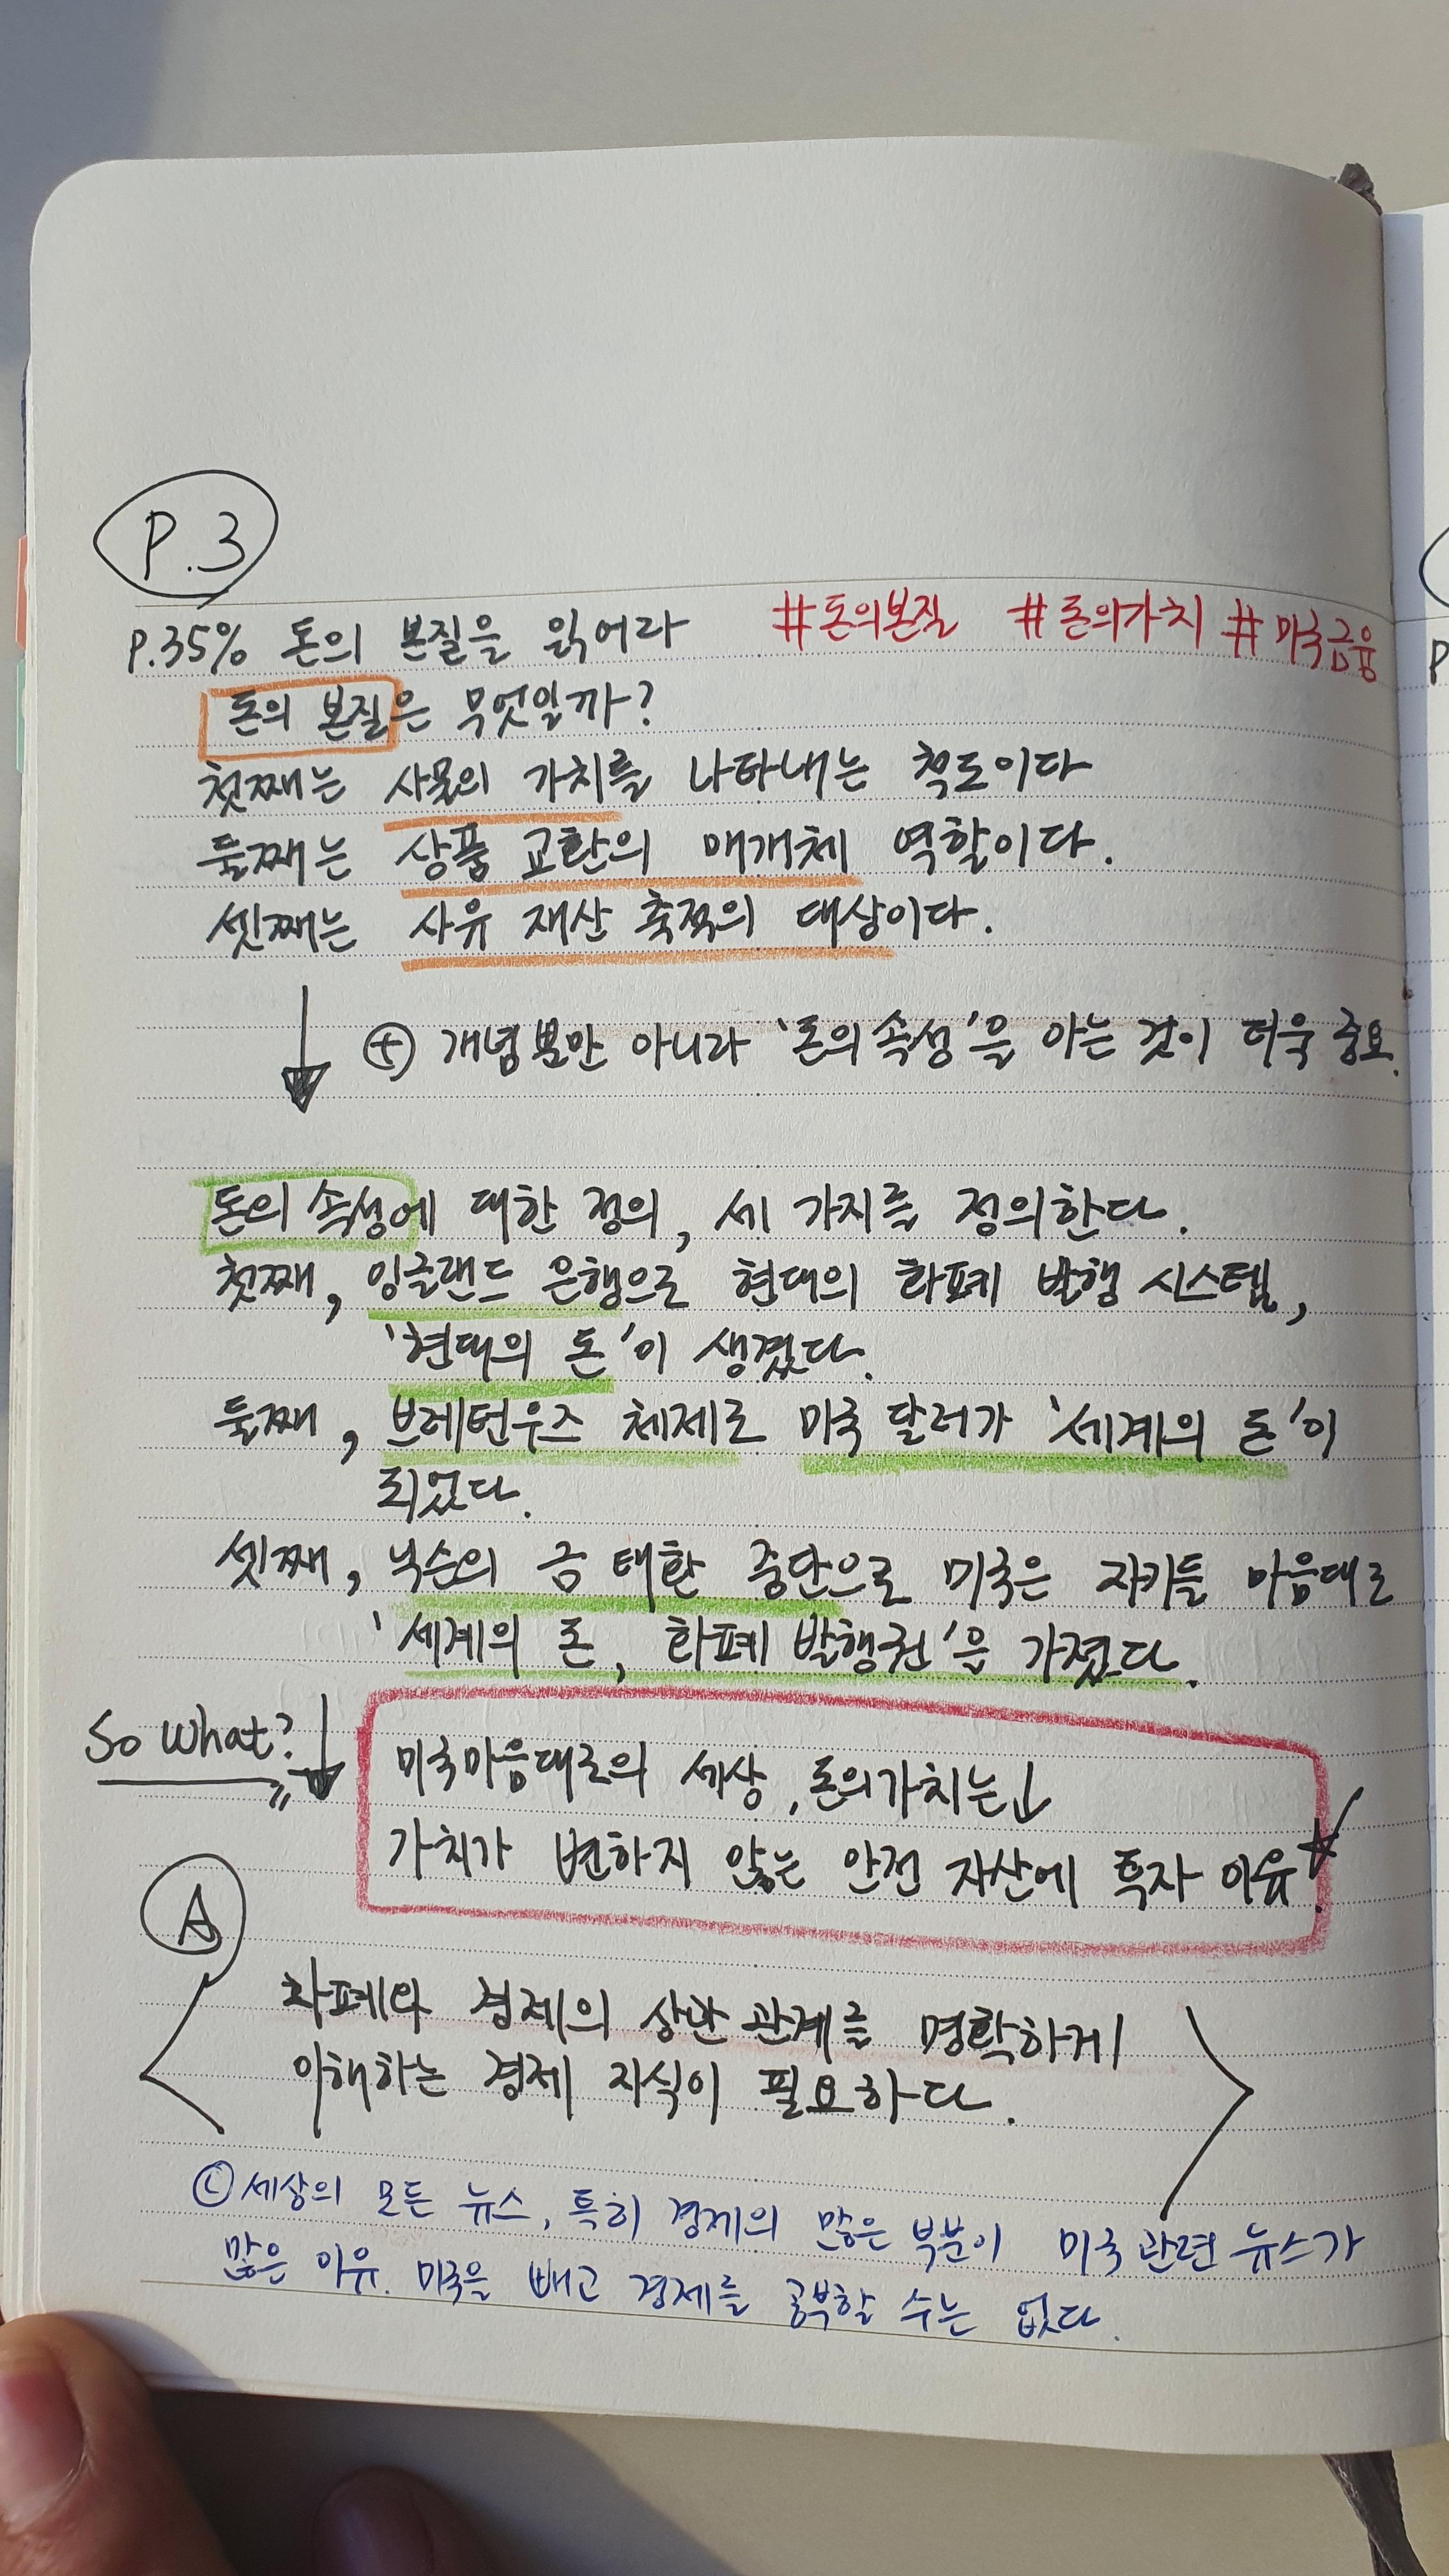 P.3
P.35% 돈의 본질을 읽어라 #돈의본질 #돈의가치 #미국금융
돈의 본질은 무엇일까?
첫째는 사물의 가치를 나타내는 척도이다
둘째는 상품 교환의 매개체 역할이다.
셋째는 사유 재산 축적의 대상이다.
⊕ 개념뿐만 아니라 '돈의 속성'을 아는 것이 더욱 중요.
돈의 속성에 대한 정의, 세 가지를 정의한다.
첫째, 잉글랜드 은행으로 현대의 화폐 발행 시스템,
'현대의 돈'이 생겼다.
둘째, 브레턴우즈 체제로 미국 달러가 '세계의 돈'이
되었다.
셋째, 닉슨의 금 태환 중단으로 미국은 자기들 마음대로
'세계의 돈, 화폐 발행권'을 가졌다.
So What? ↓ 미국마음대로의 세상, 돈의가치는↓
가치가 변하지 않는 안전 자산에 투자 이유.
A
화폐와 경제의 상관 관계를 명확하게
이해하는 경제 지식이 필요하다.
ⓛ 세상의 모든 뉴스, 특히 경제의 많은 부분이 미국 관련 뉴스가
많은 이유. 미국을 빼고 경제를 공부할 수는 없다.
P